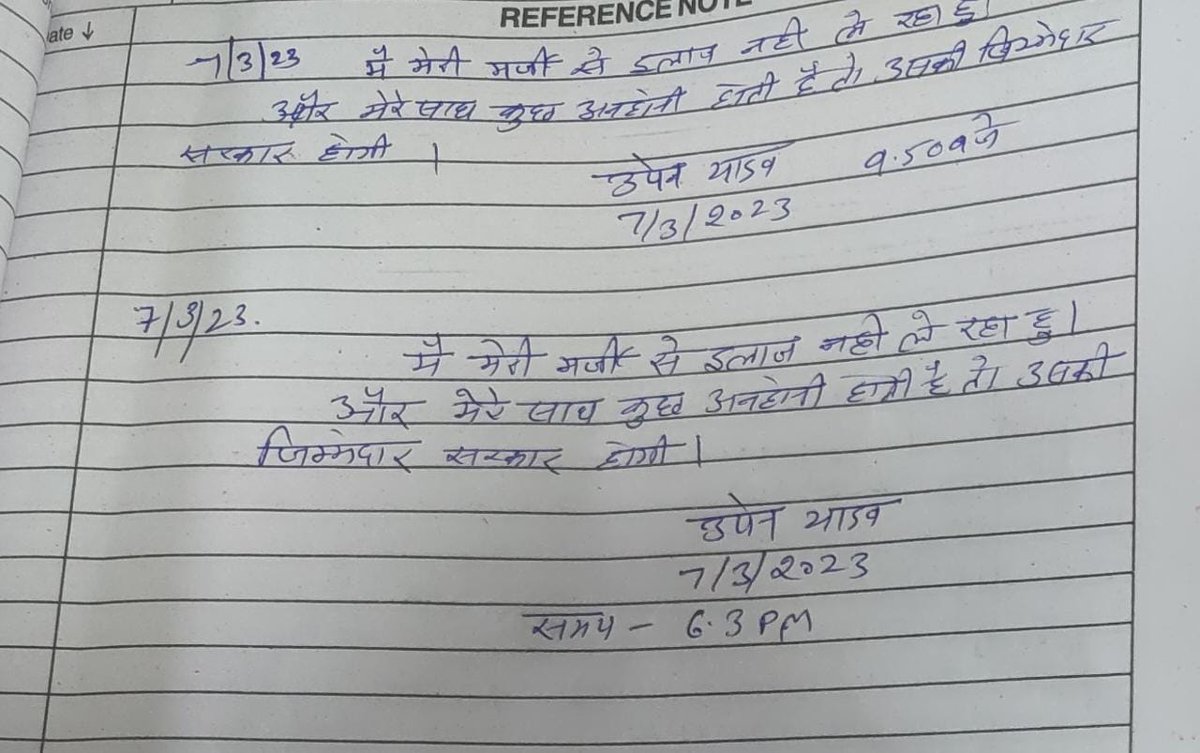 ate ↓
REFERENCE NOTE
7/3/23 मै मेरी मर्जी से इलाज नही ले रहा हु।
और मेरे साथ कुछ अनहोनी होती है तो उसकी जिम्मेदार
सरकार होगी।
उपेन यादव 9.50बजे
7/3/2023
7/3/23.
मै मेरी मर्जी से इलाज नही ले रहा हु।
और मेरे साथ कुछ अनहोनी होती है तो उसकी
जिम्मेदार सरकार होगी।
उपेन यादव
7/3/2023
समय - 6.3 PM